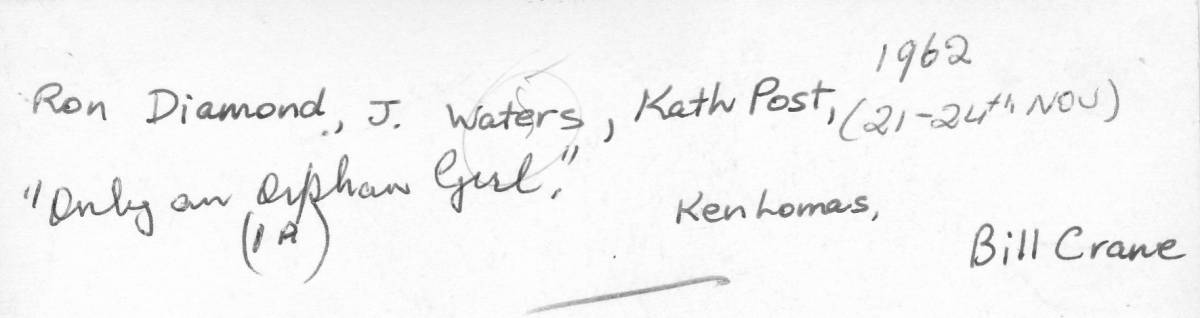 1962
Ron Diamond, J. Waters, Kath Post, (21-24th NOV)
"Only an Orphan Girl,"
(1A)
Ken Lomas,
Bill Crane